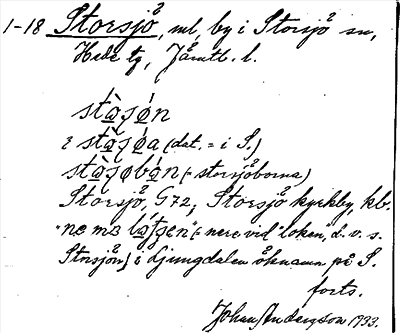 1-18 Storsjö, ml, by i Storsjö sn,
Hede tg, Jämtl. l.
stὰsǿn
i stὰsǿa (dat. = i S.)
stὰsøbån (= storsjöborna)
Storsjö, G72, Storsjö kyrkby, kb.
"ne mɜ" (= nere vid "loken", d.v.s.
Storsjön) i Ljungdalen öknamn på S.
forts.
Johan Andersson 1933.